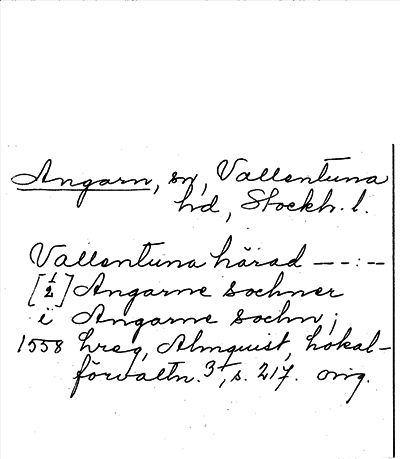 Angarn, sn, Vallentuna
hd, Stockh. l.
Vallentuna härad — — . : — —
[½] Angarne sochner
i Angarne sochn;
1558 hreg, Almquist, Lokal-
förvaltn. 3, s. 217. orig.